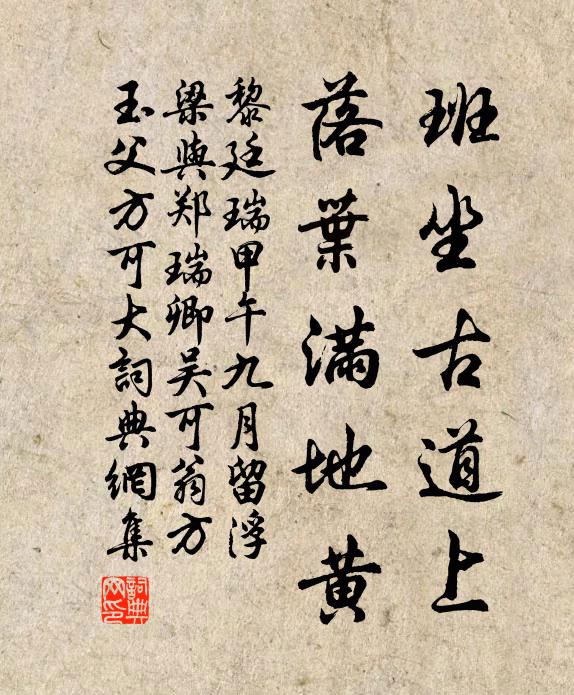 班坐古道上
落葉满地黄
黎廷瑞甲午九月留浮
梁與郑瑞卿吴可翁方
玉父方可大詞典網集
詞典